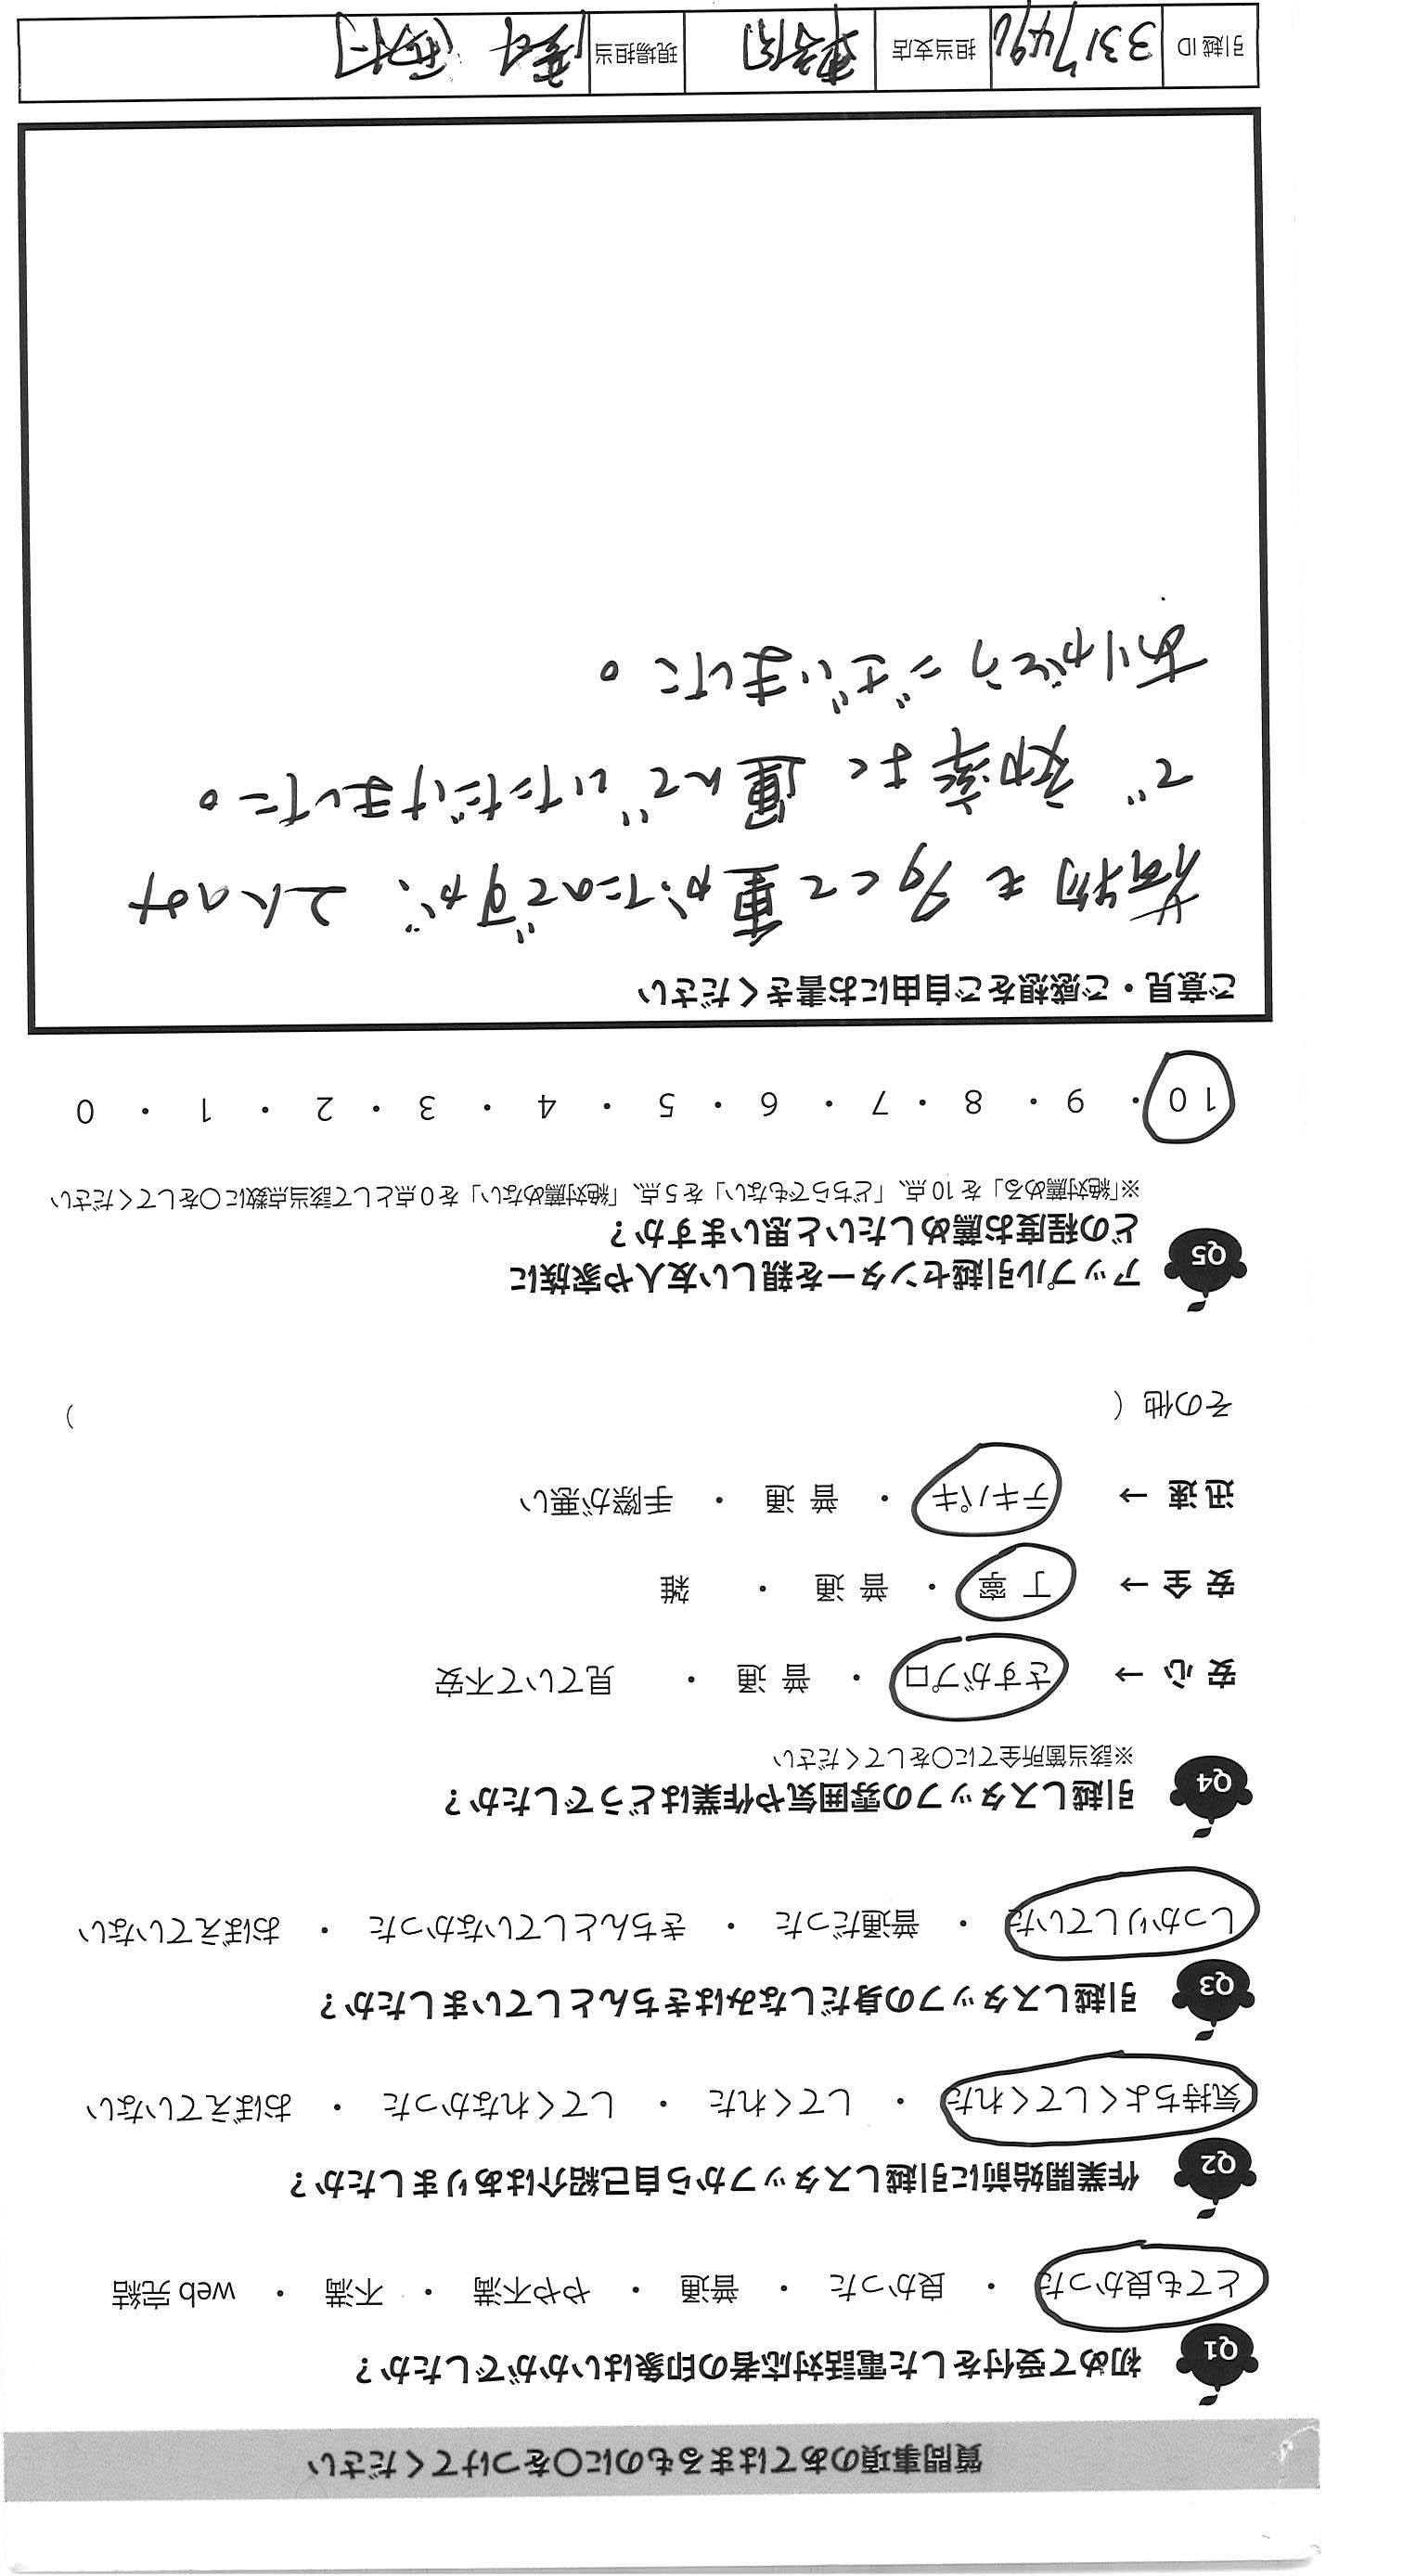 質問事項のあてはまるものに○をつけてください
Q1 初めて受付をした電話対応者の印象はいかがでしたか？
とても良かった ・ 良かった ・ 普通 ・ やや不満 ・ 不満 ・ web 完結
Q2 作業開始前に引越しスタッフから自己紹介はありましたか？
気持ちよくしてくれた ・ してくれた ・ してくれなかった ・ おぼえていない
Q3 引越しスタッフの身だしなみはきちんとしていましたか？
しっかりしていた ・ 普通だった ・ きちんとしていなかった ・ おぼえていない
Q4 引越しスタッフの雰囲気や作業はどうでしたか？
※該当箇所全てに○をしてください
安心 → さすがプロ ・ 普通 ・ 見ていて不安
安全 → 丁寧 ・ 普通 ・ 雑
迅速 → テキパキ ・ 普通 ・ 手際が悪い
その他（ ）
Q5 アップル引越センターを親しい友人や家族に
どの程度お薦めしたいと思いますか？
※「絶対薦める」を 10 点、「どちらでもない」を 5 点、「絶対薦めない」を 0 点として該当点数に○をしてください
10 ・ 9 ・ 8 ・ 7 ・ 6 ・ 5 ・ 4 ・ 3 ・ 2 ・ 1 ・ 0
ご意見・ご感想をご自由にお書きください
荷物も多くて重かったのですが、2人のみ
で効率よく運んでいただけました。
ありがとうございました。
引越 ID 担当支店 現場担当